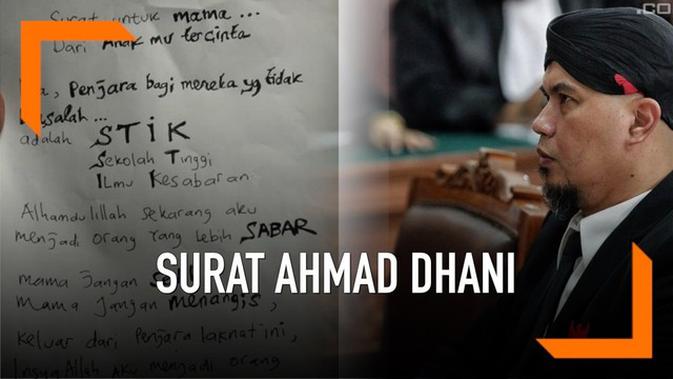 .CO
Surat untuk mama ...
Dari Anak mu tercinta
, Penjara bagi mereka yg tidak
...
adalah STIK
Sekolah Tinggi
Ilmu Kesabaran
Alhamdulillah sekarang aku
menjadi orang yang lebih SABAR
mama jangan
Mama Jangan menangis,
keluar dari Penjara laknat ini,
Insya Allah aku menjadi orang
SURAT AHMAD DHANI